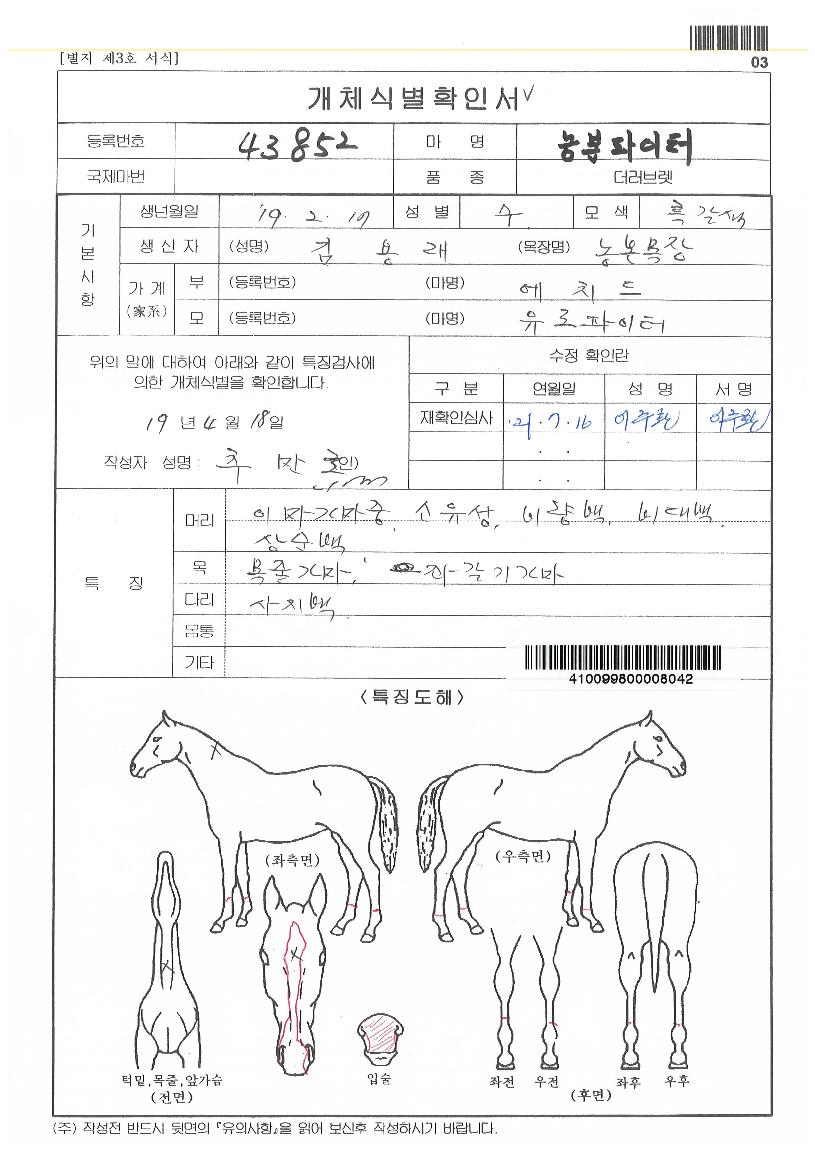 [별지 제3호 서식]
03
개체식별확인서√
등록번호 43852 마 명 농본파이터
국제마번 품 종 더러브렛
기본사항
생년월일 '19. 2. 10 성 별 수 모 색 흑갈색
생 산 자 (성명) 김 용 래 (목장명) 농본목장
가 계 (家系) 부 (등록번호) (마명) 에 치 드
모 (등록번호) (마명) 유로파이터
위의 말에 대하여 아래와 같이 특징검사에
의한 개체식별을 확인합니다.
19 년 4 월 18일
작성자 성명 : 추 만 호 인)
수정 확인란
구 분 연월일 성 명 서 명
재확인심사 '21.7.16
. .
. .
특 징
머리 이마가마중, 소유성, 비량백, 비대백,
상순백
목 목줄가마, 좌갈기가마
다리 사지백
몸통
기타
410099800008042
<특징도해>
(좌측면)
(우측면)
턱밑,목줄,앞가슴
(전면)
입술
좌전 우전 좌후 우후
(후면)
(주) 작성전 반드시 뒷면의 『유의사항』을 읽어 보신후 작성하시기 바랍니다.